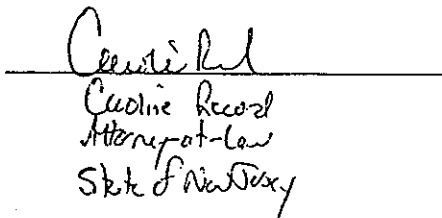 Caroline Record
Caroline Record
Attorney-at-Law
State of New Jersey